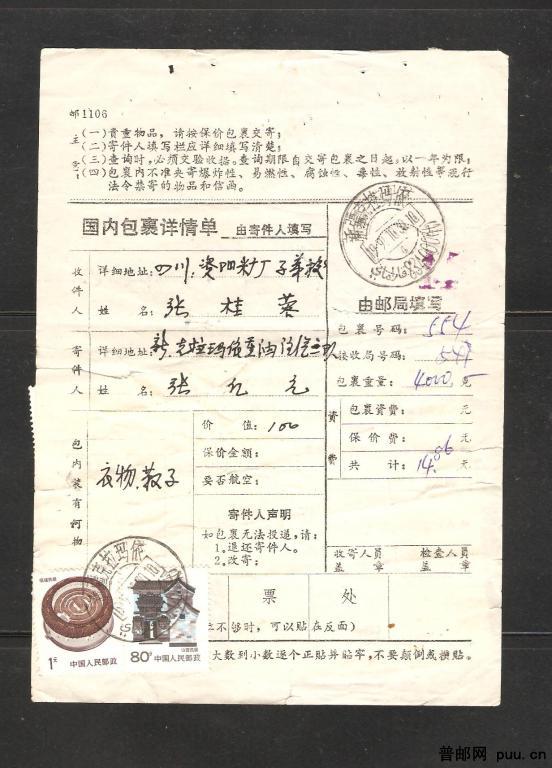 邮1106
主
(一)贵重物品,请按保价包裹交寄;
(二)寄件人填写栏应详细填写清楚;
(三)查询时,必须交验收据。查询期限自交寄包裹之日起,以一年为限;
(四)包裹内不准夹寄爆炸性、易燃性、腐蚀性、毒性、放射性等现行
法令禁寄的物品和信函。
国内包裹详情单 由寄件人填写
收件人
详细地址:四川资阳
姓名:张桂蓉
寄件人
详细地址:
姓名:张
包内装有何物
衣物
价值:100
保价金额:
要否航空:
寄件人声明
如包裹无法投递,请:
1.退还寄件人。
2.改寄:
由邮局填写
包裹号码:554
接收局号码:
包裹重量:4000克
资费
包裹资费:元
保价费:元
共计:14.86元
收寄人员盖章
检查人员盖章
票处
不够时,可以贴在反面)
大数到小数逐个正贴并贴牢,不要颠倒或横贴。
新疆克拉玛依
福建民居
1元 中国人民邮政
山西民居
80分 中国人民邮政
普邮网 puu.cn